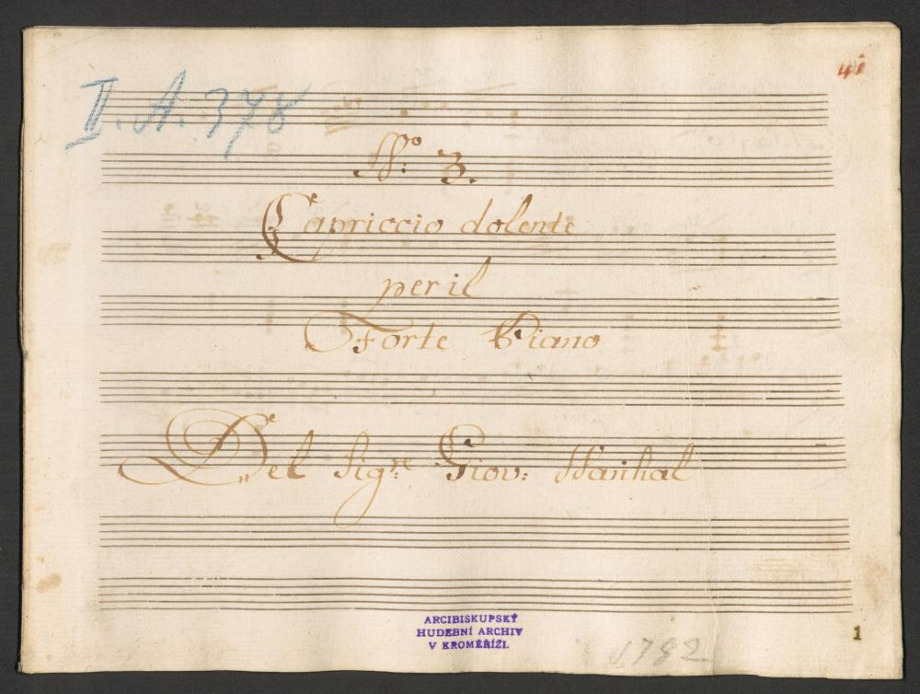 II. A. 378
41
No: 3.
Capriccio dolente
per il
Forte Piano
Del Sigre: Giov: Wanhal
ARCIBISKUPSKÝ
HUDEBNÍ ARCHIV
V KROMĚŘÍŽI.
1782
1